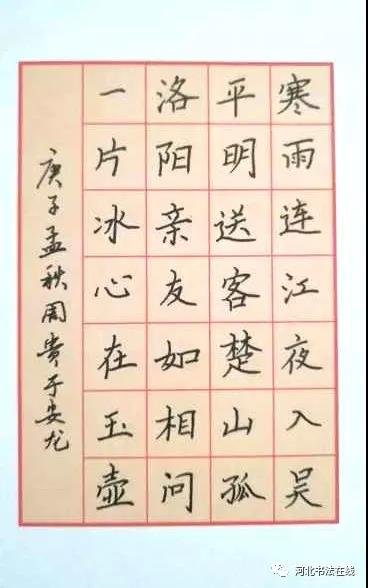 寒雨连江夜入吴
平明送客楚山孤
洛阳亲友如相问
一片冰心在玉壶
庚子孟秋周贵于安龙
河北书法在线